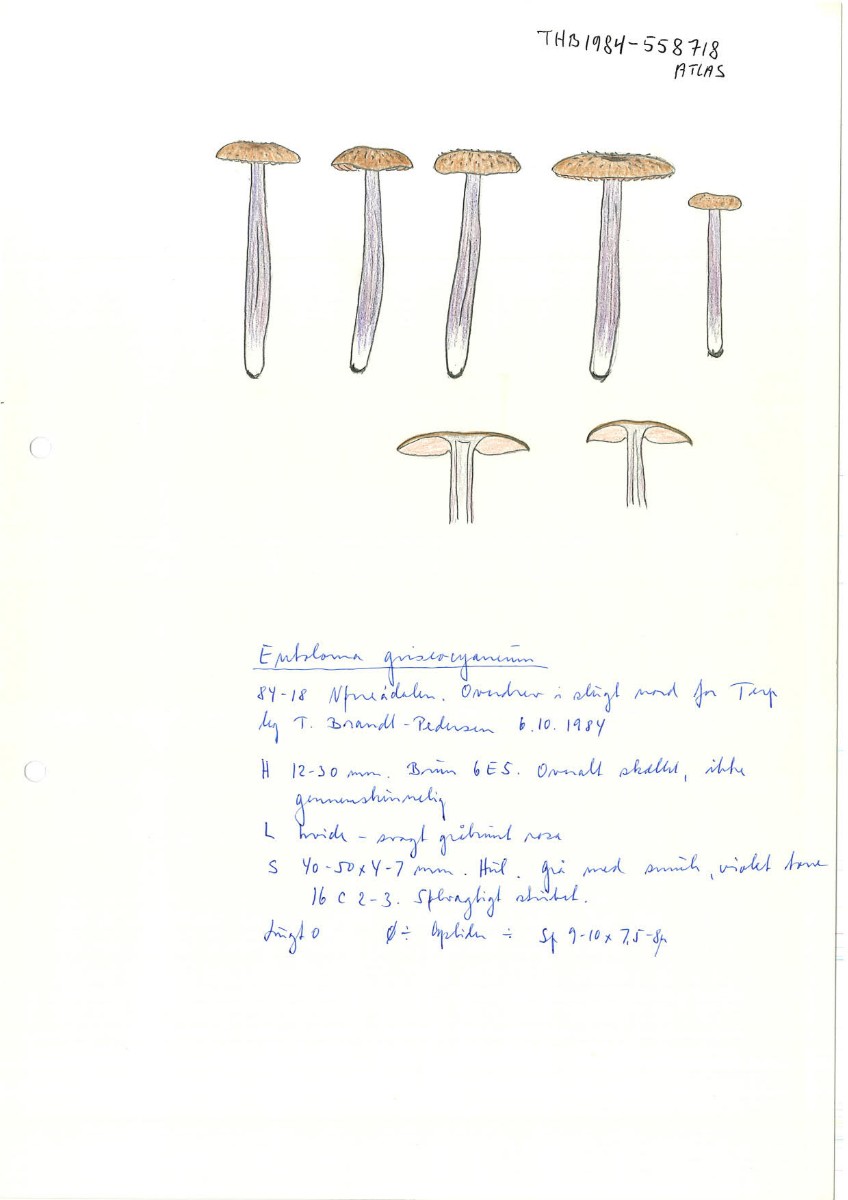 THB1984-558718
ATLAS
Entoloma griseocyaneum
84-18 Nørreådalen. Overdrev i slugt nord for Terp
leg T. Brandt-Pedersen 6.10.1984
H 12-30 mm. Brun 6E5. Overalt skællet, ikke
gennemskinnelig
L hvide - svagt gråbrunt rosa
S 40-50 x 4-7 mm. Hul. grå med smuk, violet tone
16 C 2-3. Sølvagtigt stribet.
Lugt 0 Ø ÷ ÷ Sp 9-10 x 7,5-8µ